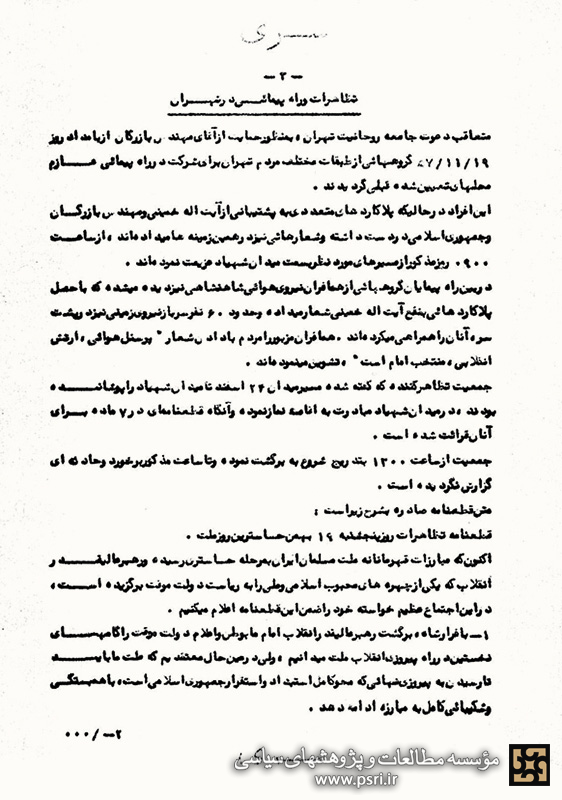 ســری
-۲-
تظاهرات وراه پیمائی در تهران
متعاقب دعوت جامعه روحانیت تهران ، بمنظور حمایت از آقای مهندس بازرگان از بامداد روز
۵۷/۱۱/۱۹ گروههائی از طبقات مختلف مردم تهران برای شرکت در راه پیمائی عازم
محلهای تعیین شده قبلی گردیدند .
این افراد در حالیکه پلاکاردهای متعددی به پشتیبانی از آیت اله خمینی ومهندس بازرگان
وجمهوری اسلامی در دست داشته وشعارهائی نیز در همین زمینه ها میداده اند ، از ساعت
۰۹۰۰ روز مذکور از مسیرهای مورد نظر بسمت میدان شهیاد عزیمت نموده اند .
در بین راه پیمایان گروههائی از همافران نیروی هوائی شاهنشاهی نیز دیده میشده که با حمل
پلاکاردهائی بنفع آیت اله خمینی شعار میداده وحدود ۶۰ نفر سرباز نیروی زمینی نیز در پشت
سر ، آنان را همراهی میکرده اند . همافران مزبور را مردم با دادن شعار " پرسنل هوائی ، ارتش
انقلابی ، منتخب امام است " ، تشویق مینموده اند .
جمعیت تظاهر کننده که گفته شده مسیر میدان ۲۴ اسفند تا میدان شهیاد را پوشانده
بودند ، در میدان شهیاد مبادرت به اقامه نماز نموده وآنگاه قطعنامه ای در ۷ ماده برای
آنان قرائت شده است .
جمعیت از ساعت ۱۳۰۰ بتدریج شروع به برگشت نموده وتا ساعت مذکور برخورد وحادثه ای
گزارش نگردیده است .
متن قطعنامه صادره بشرح زیر است :
قطعنامه تظاهرات روز پنجشنبه ۱۹ بهمن حساسترین روز ملت .
اکنون که مبارزات قهرمانانه ملت مسلمان ایران به مرحله حساستری رسیده ورهبر عالیقدر
انقلاب که یکی از چهره های محبوب اسلامی وملی را به ریاست دولت موقت برگزیده است ،
در این اجتماع عظیم خواسته خود را ضمن این قطعنامه اعلام میکنیم .
۱- با فرار شاه ، برگشت رهبر عالیقدر انقلاب امام ما بوطن واعلام دولت موقت را گامهای
نخستین در راه پیروزی انقلاب ملت میدانیم ، ولی در عین حال معتقدیم که ملت ما باید
تا رسیدن به پیروزی نهائی که محو کامل استبداد واستقرار جمهوری اسلامی است ، با همبستگی
وشکیبائی کامل به مبارزه ادامه دهد .
۲-/۰۰۰
مؤسسه مطالعات و پژوهشهای سیاسی
www.psri.ir